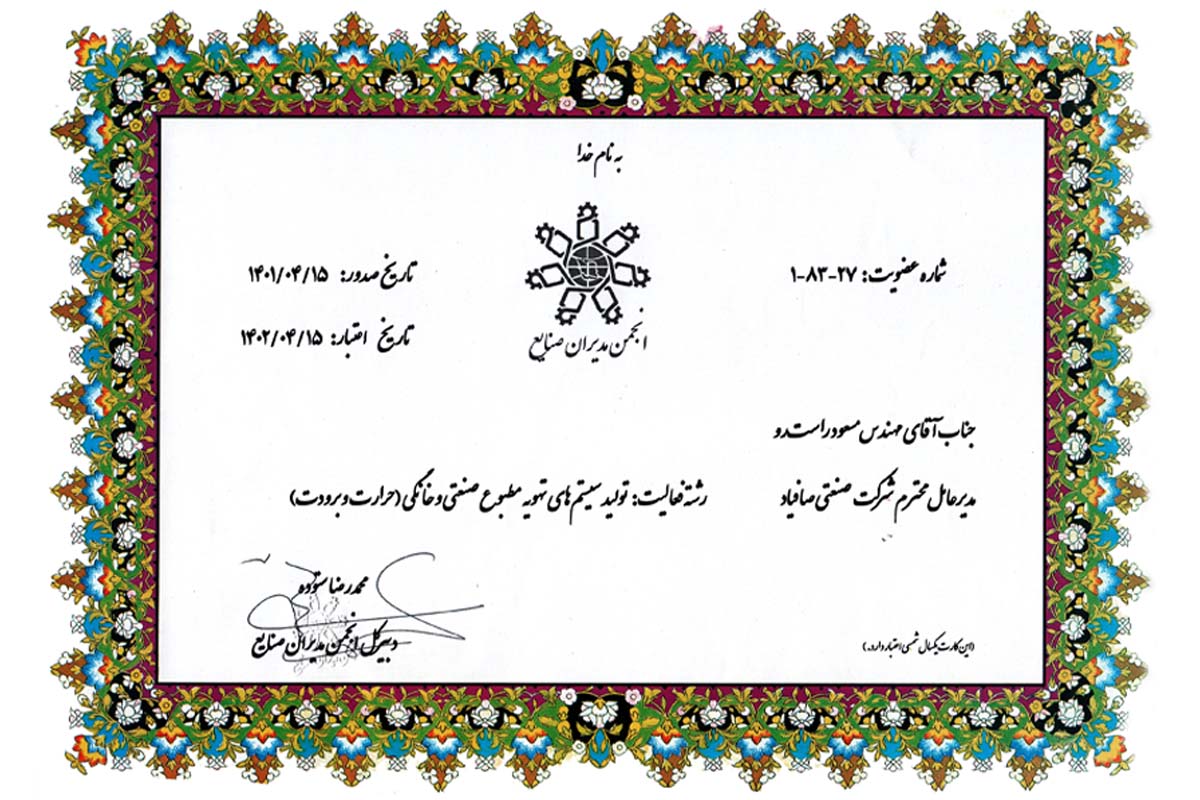 به نام خدا
شماره عضویت: ۲۷-۸۳-۱
تاریخ صدور: ۱۴۰۱/۰۴/۱۵
انجمن مدیران صنایع
تاریخ اعتبار: ۱۴۰۲/۰۴/۱۵
جناب آقای مهندس مسعود راست رو
مدیرعامل محترم شرکت صنعتی صافیاد
رشته فعالیت: تولید سیستم های تهویه مطبوع صنعتی و خانگی (حرارت و برودت)
محمدرضا ستوده
دبیرکل انجمن مدیران صنایع
(این کارت یکسال شمسی اعتبار دارد.)